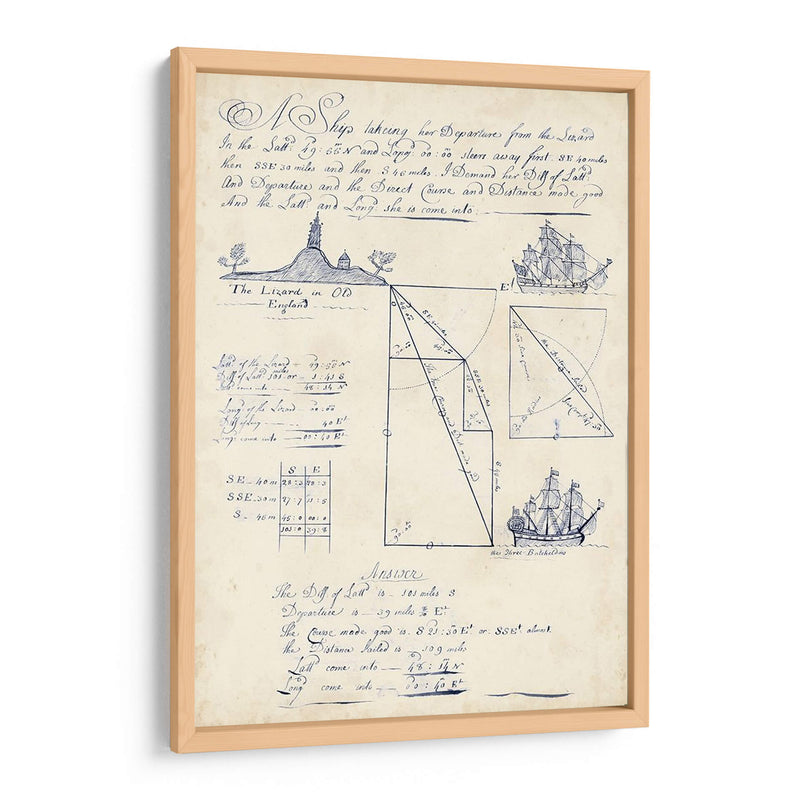 A Ship takeing her Departure from the Lizard
In the Latt: 49:55 N and Long: 00:00 steers away first SE 40 miles
then SSE 30 miles and then S 46 miles. I Demand her Diff of Latt:
And Departure and the Direct Course and Distance made good
And the Latt: and Long: she is come into:
The Lizard in Old
England
E
Latt: of the Lizard - 49:55 N
Diff of Latt: 101 or - 1:41 S
come into 48:14 N
Long: of the Lizard - 00:00
Diff of Long - 40 Et
Long: come into - 00:40 Et
S E
SE - 40 m 28:3 28:3
SSE - 30 m 27:7 11:5
S - 46 m 45:0 00:0
101:0 39:8
SE 40 miles
SSE 30 miles
S 46 miles
The true Course and Dist made good
the Three Batcheldors
Answer
The Diff of Latt: is - 101 miles S
Departure is - 39 miles Et
The Course made good is S 21:30 Et or SSEt almost
the Distance sailed is - 109 miles
Latt come into - 48:14 N
Long come into - 00:40 Et